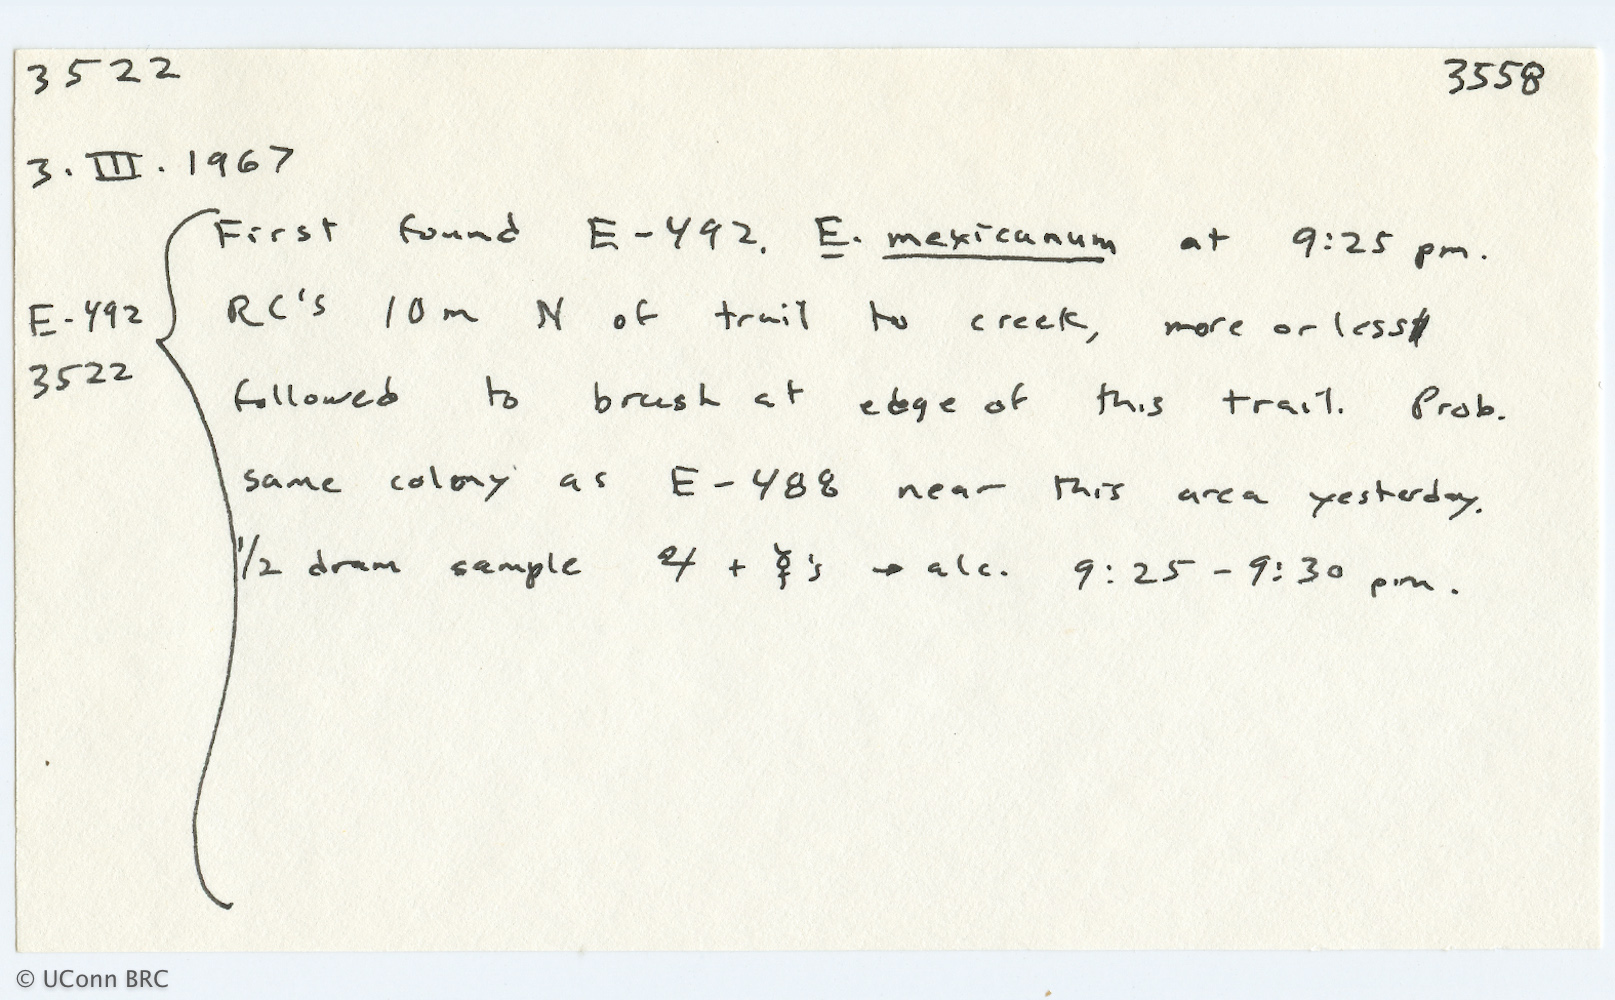 3522 3558
3. III. 1967
First found E-492. E. mexicanum at 9:25 pm.
E-492 RC's 10m N of trail to creek, more or less
3522 followed to brush at edge of this trail. Prob.
same colony as E-488 near this area yesterday.
1/2 dram sample ♃ + ☿'s → alc. 9:25 - 9:30 pm.
© UConn BRC